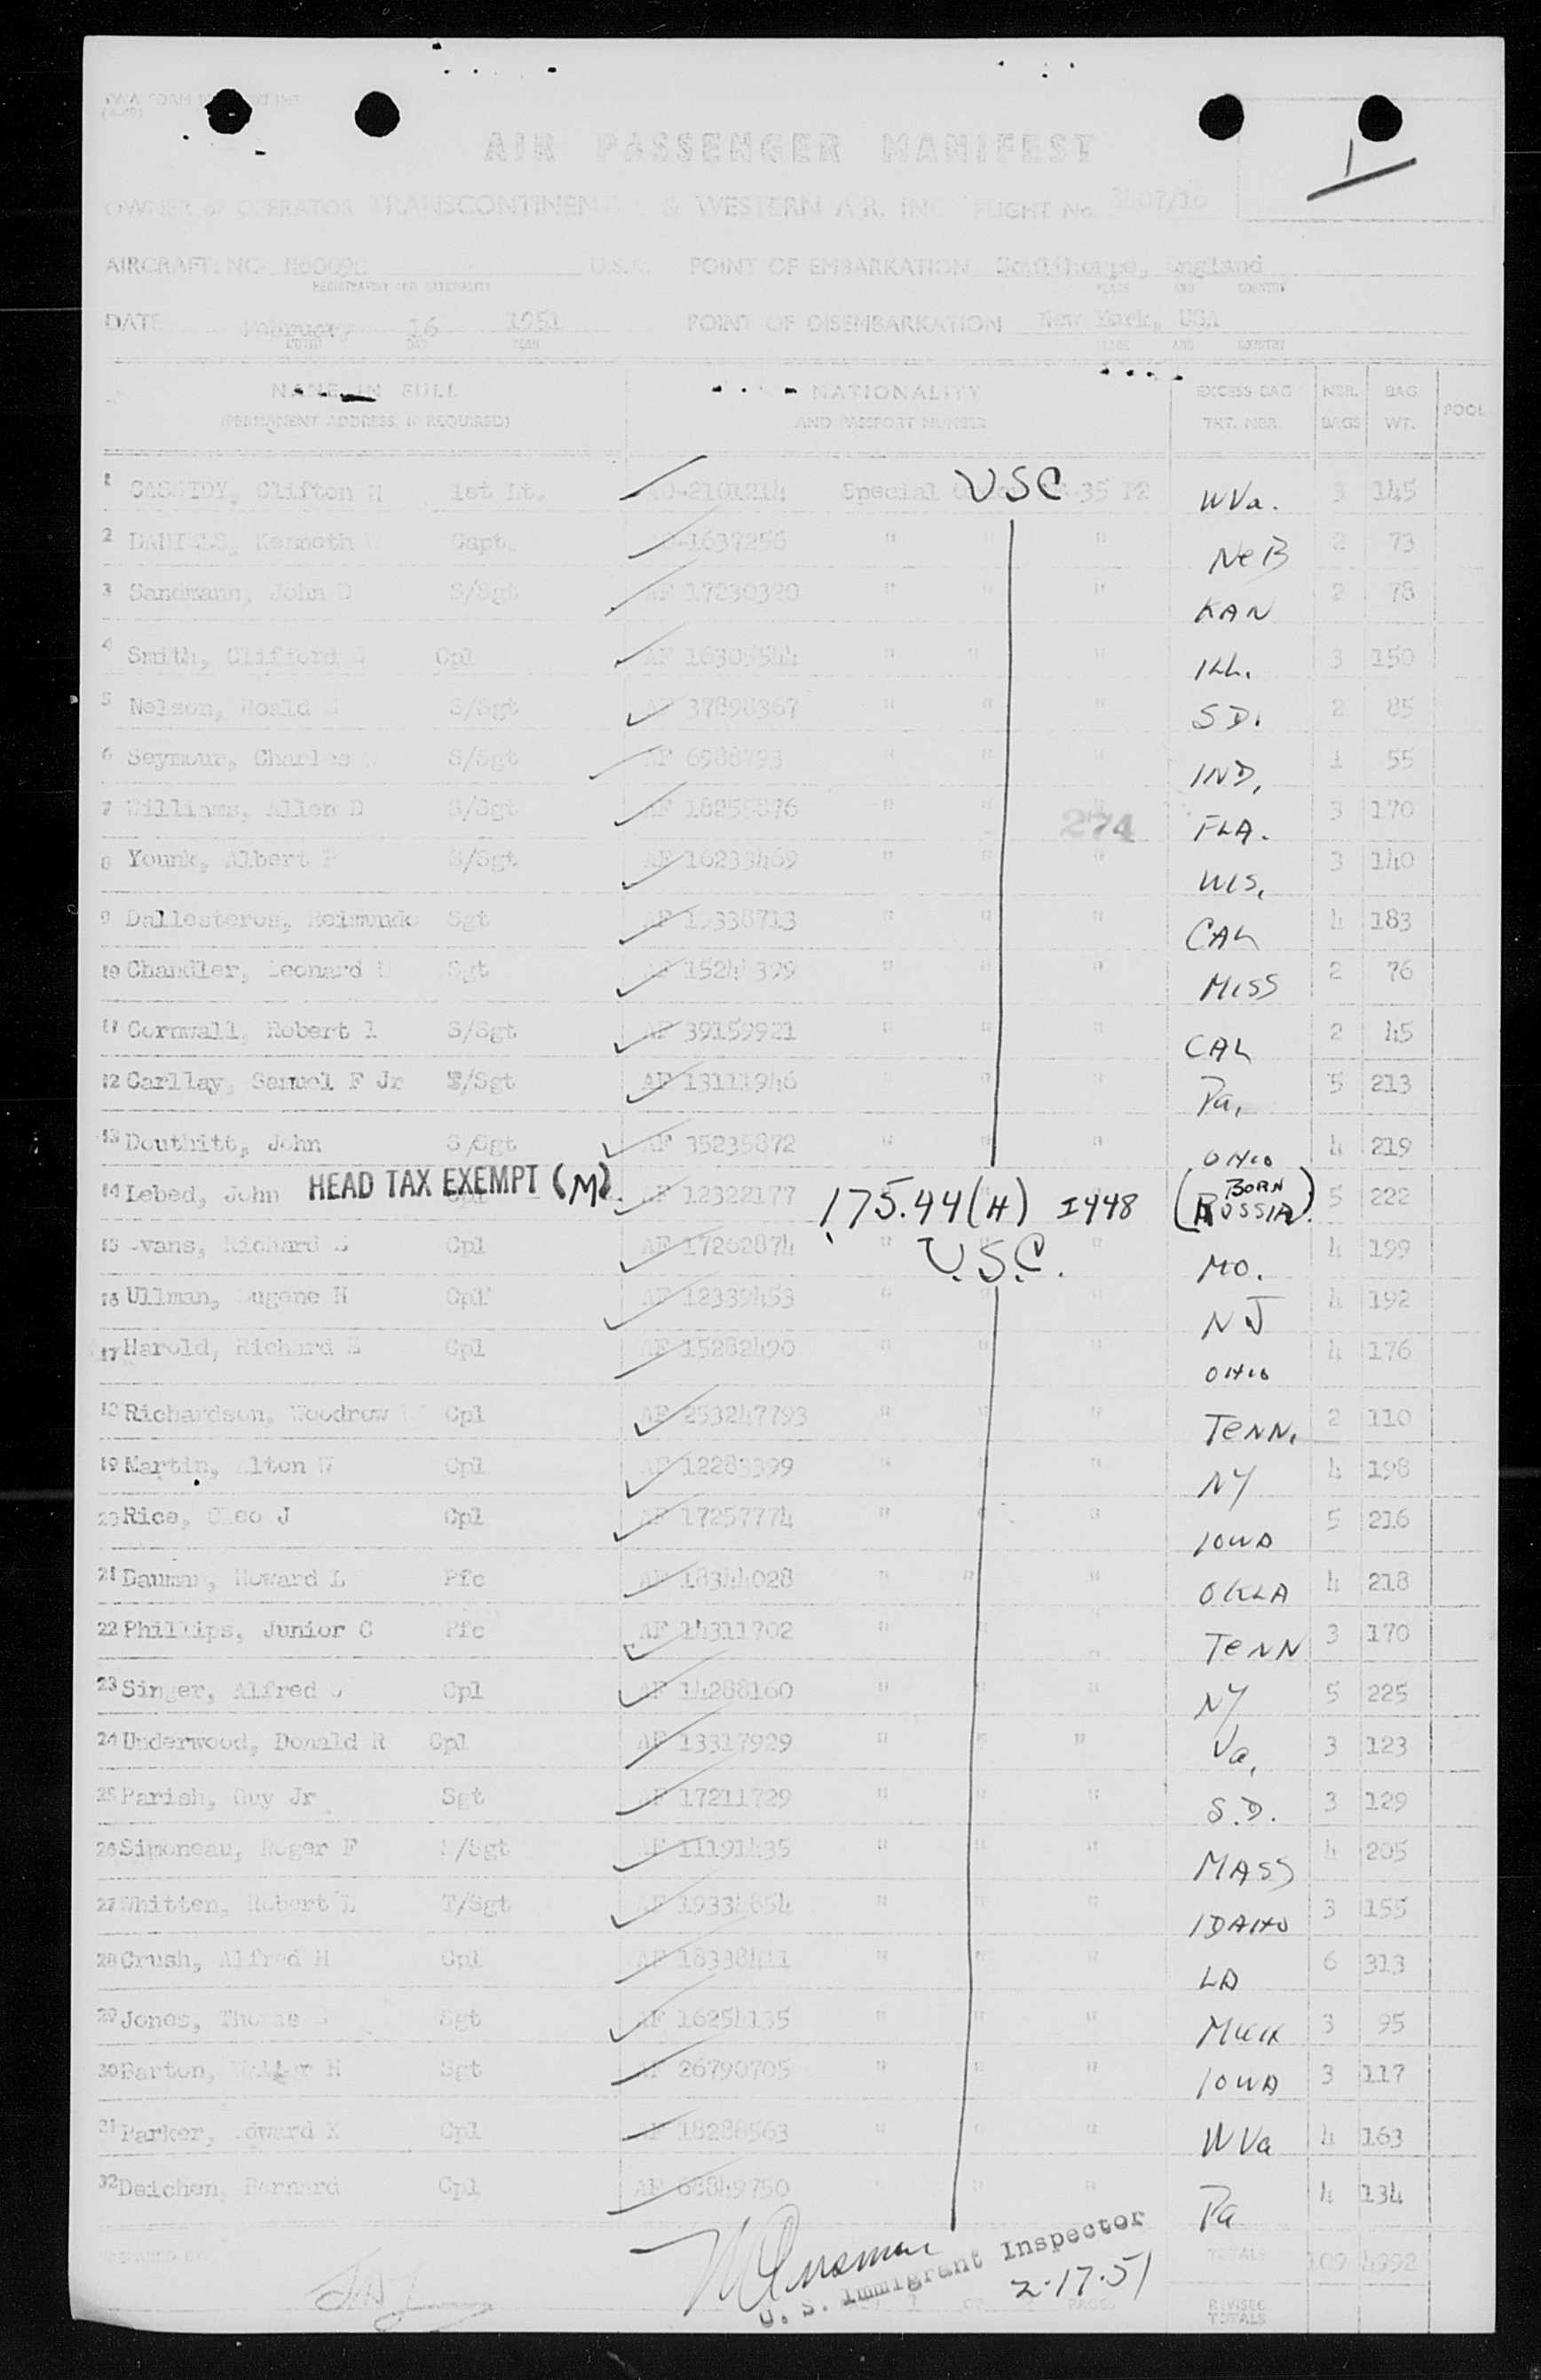 AIR PASSENGER MANIFEST
1
OWNER or OPERATOR TRANSCONTINEN & WESTERN AIR. INC FLIGHT No.
AIRCRAFT NO. U.S.A. POINT OF EMBARKATION Sculthorpe, England
PLACE AND COUNTRY
DATE February 16 1951 POINT OF DISEMBARKATION New York, USA
MONTH DAY YEAR PLACE AND COUNTRY
NAME IN FULL NATIONALITY EXCESS BAG NBR. BAG POOL
(PERMANENT ADDRESS, IF REQUIRED) AND PASSPORT NUMBER TKT. NBR. BAGS WT.
1 CASSIDY, Clifton H 1st Lt. AO-2101214 Special USC 35 P2 WVa. 3 145
2 DANIELS, Kenneth Capt. AO-1637256 " " " NeB 2 73
3 Sandmann, John D S/Sgt AF 17230320 " " " KAN 2 78
4 Smith, Clifford Cpl AF 16305544 " " " ILL. 3 150
5 Nelson, Roald S/Sgt AF 37898367 " " " SD. 2 85
6 Seymour, Charles S/Sgt AF 6988793 " " " IND. 1 55
7 Williams, Allen D S/Sgt AF 18255876 " " " 274 FLA. 3 170
8 Younk, Albert S/Sgt AF 16233469 " " " WIS. 3 140
9 Dallesteros, Reimundo Sgt AF 19338713 " " " CAL 4 183
10 Chandler, Leonard Sgt AF 399 " " " MISS 2 76
11 Cornwall, Robert S/Sgt AF 39159921 " " " CAL 2 45
12 Carllay, Samuel F Jr T/Sgt AF 13111946 " " " Pa. 5 213
13 Douthitt, John S/Sgt AF 35235872 " " " OHIO 4 219
14 Lebed, John HEAD TAX EXEMPT (M). AF 12322177 175.44(H) I448 (BORN RUSSIA). 5 222
15 Evans, Richard Cpl AF 17262874 " U.S.C. " MO. 4 199
16 Ullman, Eugene H Cpl AF 12339453 " " " NJ 4 192
17 Harold, Richard Cpl AF 15282490 " " " OHIO 4 176
18 Richardson, Woodrow Cpl AF 253247793 " " " TENN. 2 110
19 Martin, Alton W Cpl AF 12283399 " " " NY 4 198
20 Rice, Cleo J Cpl AF 17257774 " " " IOWA 5 216
21 Dauman, Howard L Pfc AF 18344028 " " " OKLA 4 218
22 Phillips, Junior C Pfc AF 14311702 " " TENN 3 170
23 Singer, Alfred Cpl AF 14288160 " " " NY 5 225
24 Underwood, Donald R Cpl AF 13317929 " " " Va. 3 123
25 Parish, Guy Jr Sgt AF 17211729 " " " S.D. 3 129
26 Simoneau, Roger F /Sgt AF 11191435 " " " MASS 4 205
27 Whitten, Robert L T/Sgt AF 19334854 " " " IDAHO 3 155
28 Crush, Alfred H Cpl AF 18338411 " " " LA 6 313
29 Jones, Thomas Sgt AF 16254135 " " " MICH 3 95
30 Barton, Walter H Sgt AF 26790705 " " " IOWA 3 117
31 Parker, Edward K Cpl AF 18288563 " " " WVa 4 163
32 Deichen, Bernard Cpl AF 68849750 " " Pa 4 134
U. S. Immigrant Inspector
2-17-51
TOTALS 109 4992
1 OF PAGES
REVISED TOTALS